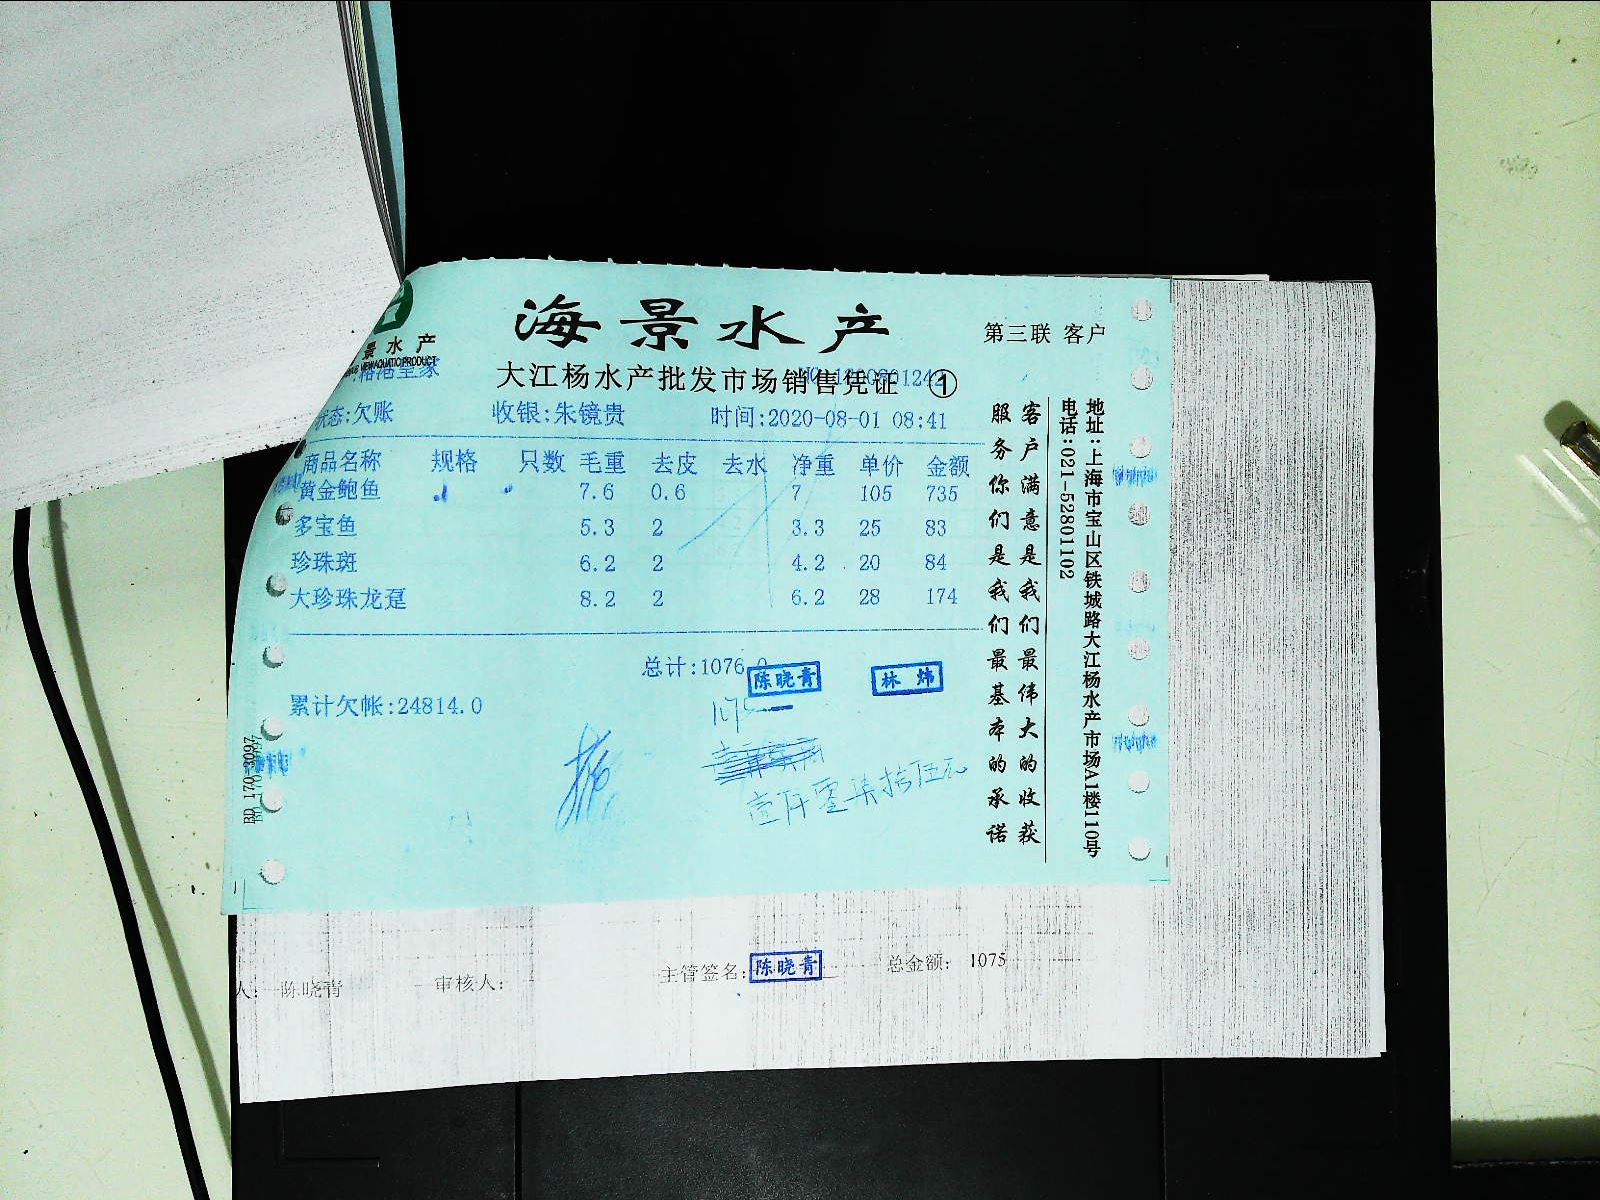 海景水产
第三联 客户
景水产
VIEW AQUATIC PRODUCT
大江杨水产批发市场销售凭证 ①
状态:欠账 收银:朱镜贵 时间:2020-08-01 08:41
商品名称 规格 只数 毛重 去皮 去水 净重 单价 金额
黄金鲍鱼 7.6 0.6 7 105 735
多宝鱼 5.3 2 3.3 25 83
珍珠斑 6.2 2 4.2 20 84
大珍珠龙趸 8.2 2 6.2 28 174
总计:1076.0
陈晓青
林炜
累计欠帐:24814.0
1075
壹仟零柒拾伍元
客户满意是我们最伟大的收获
服务你们是我们最基本的承诺
地址:上海市宝山区铁城路大江杨水产市场A1楼110号
电话:021-52801102
BD 170-3097
人: 陈晓青 审核人: 主管签名: 陈晓青 总金额: 1075